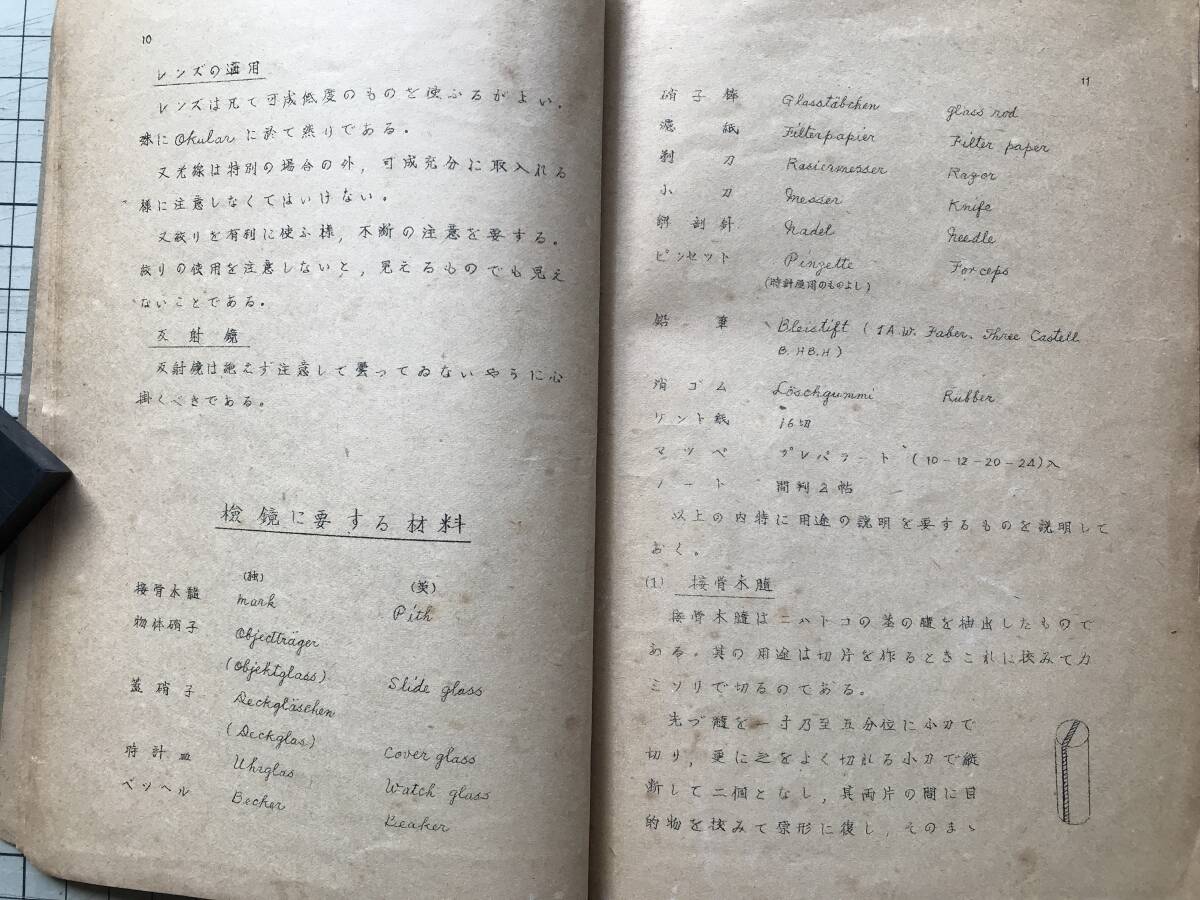 10
レンズの適用
レンズは凡て可成低度のものを使ふるがよい.
殊にOkularに於て然りである.
又光線は特別の場合の外, 可成充分に取入れる
様に注意しなくてはいけない.
又絞りを有利に使ふ様, 不断の注意を要する.
絞りの使用を注意しないと, 見えるものでも見え
ないことである.
反射鏡
反射鏡は絶えず注意して曇ってゐないやうに心
掛くべきである.
検鏡に要する材料
(独) (英)
接骨木髓 Mark Pith
物体硝子 Objectträger
(Objektglass) Slide glass
蓋硝子 Deckgläschen
(Deckglas) Cover glass
時計皿 Uhrglas Watch glass
ベッヘル Becker Beaker
11
硝子棒 Glasstäbchen glass rod
濾紙 Filterpapier Filter paper
剃刀 Rasiermesser Razor
小刀 Messer Knife
解剖針 Nadel Needle
ピンセット Pinzette Forceps
(時計屋用のものよし)
鉛筆 Bleistift (A.W. Faber, Three Castell
B. HB. H)
消ゴム Löschgummi Rubber
ケント紙 16切
マッペ プレパラート (10-12-20-24)入
ノート 間判2帖
以上の内特に用途の説明を要するものを説明して
おく.
(1) 接骨木髓
接骨木髓はニハトコの茎の髓を抽出したもので
ある. 其の用途は切片を作るときこれに挟みてカ
ミソリで切るのである.
先づ髓を一寸乃至五分位に小刀で
切り, 更に之をよく切れる小刀で縦
断して二個となし, 其両片の間に目
的物を挟みて原形に復し, そのまゝ